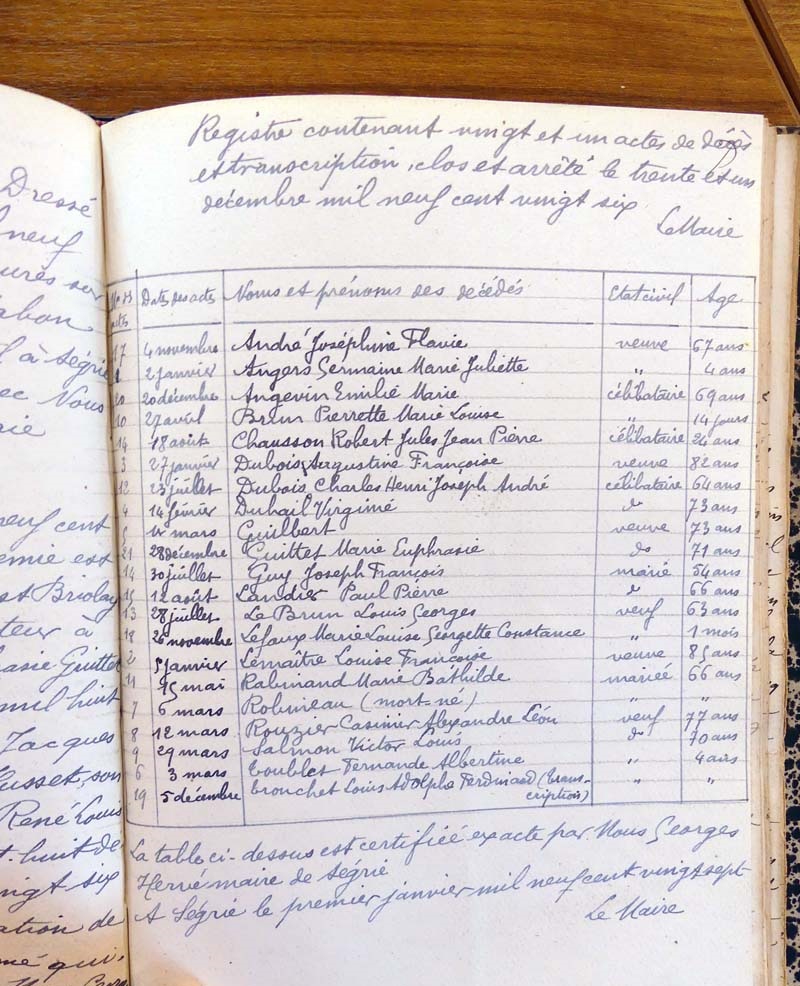 Dressé
neuf
à Ségrie
ec Nous
rie
neuf cent
emie est
et Briolay
teur à
hasie Guittet
mil huit
Jacques
son
René Louis
t. huit de
ingt six
ation de
mé qui,
Registre contenant vingt et un actes de décès
et transcription, clos et arrêté le trente et un
décembre mil neuf cent vingt six
Le Maire
Nos des actes Dates des actes Noms et prénoms des décédés Etat civil Age
17 4 novembre André Joséphine Flavie veuve 67 ans
1 2 janvier Angers Germaine Marie Juliette " 4 ans
20 20 décembre Angevin Emilie Marie célibataire 69 ans
10 27 avril Brun Pierrette Marie Louise " 14 jours
14 18 août Chausson Robert Jules Jean Pierre célibataire 24 ans
3 27 janvier Dubois Augustine Françoise veuve 82 ans
12 23 juillet Dubois Charles Henri Joseph André célibataire 64 ans
4 14 février Duhail Virginie do 73 ans
mars Guilbert veuve 73 ans
21 28 décembre Guittet Marie Euphrasie do 71 ans
14 30 juillet Guy Joseph François marié 54 ans
15 12 août Landier Paul Pierre do 66 ans
13 28 juillet Le Brun Louis Georges veuf 63 ans
18 26 novembre Lefaux Marie Louise Georgette Constance " 1 mois
2 5 janvier Lemaître Louise Françoise veuve 85 ans
11 15 mai Rabinand Marie Bathilde mariée 66 ans
7 6 mars Robineau (mort-né) " "
8 12 mars Rouzier Casimir Alexandre Léon veuf 77 ans
9 29 mars Salmon Victor Louis do 70 ans
6 3 mars Toublet Fernande Albertine " 4 ans
19 5 décembre Tronchet Louis Adolphe Ferdinand (trans- " "
cription)
La table ci-dessus est certifiée exacte par Nous Georges
Hervé maire de Ségrie
A Ségrie le premier janvier mil neuf cent vingt sept
Le Maire